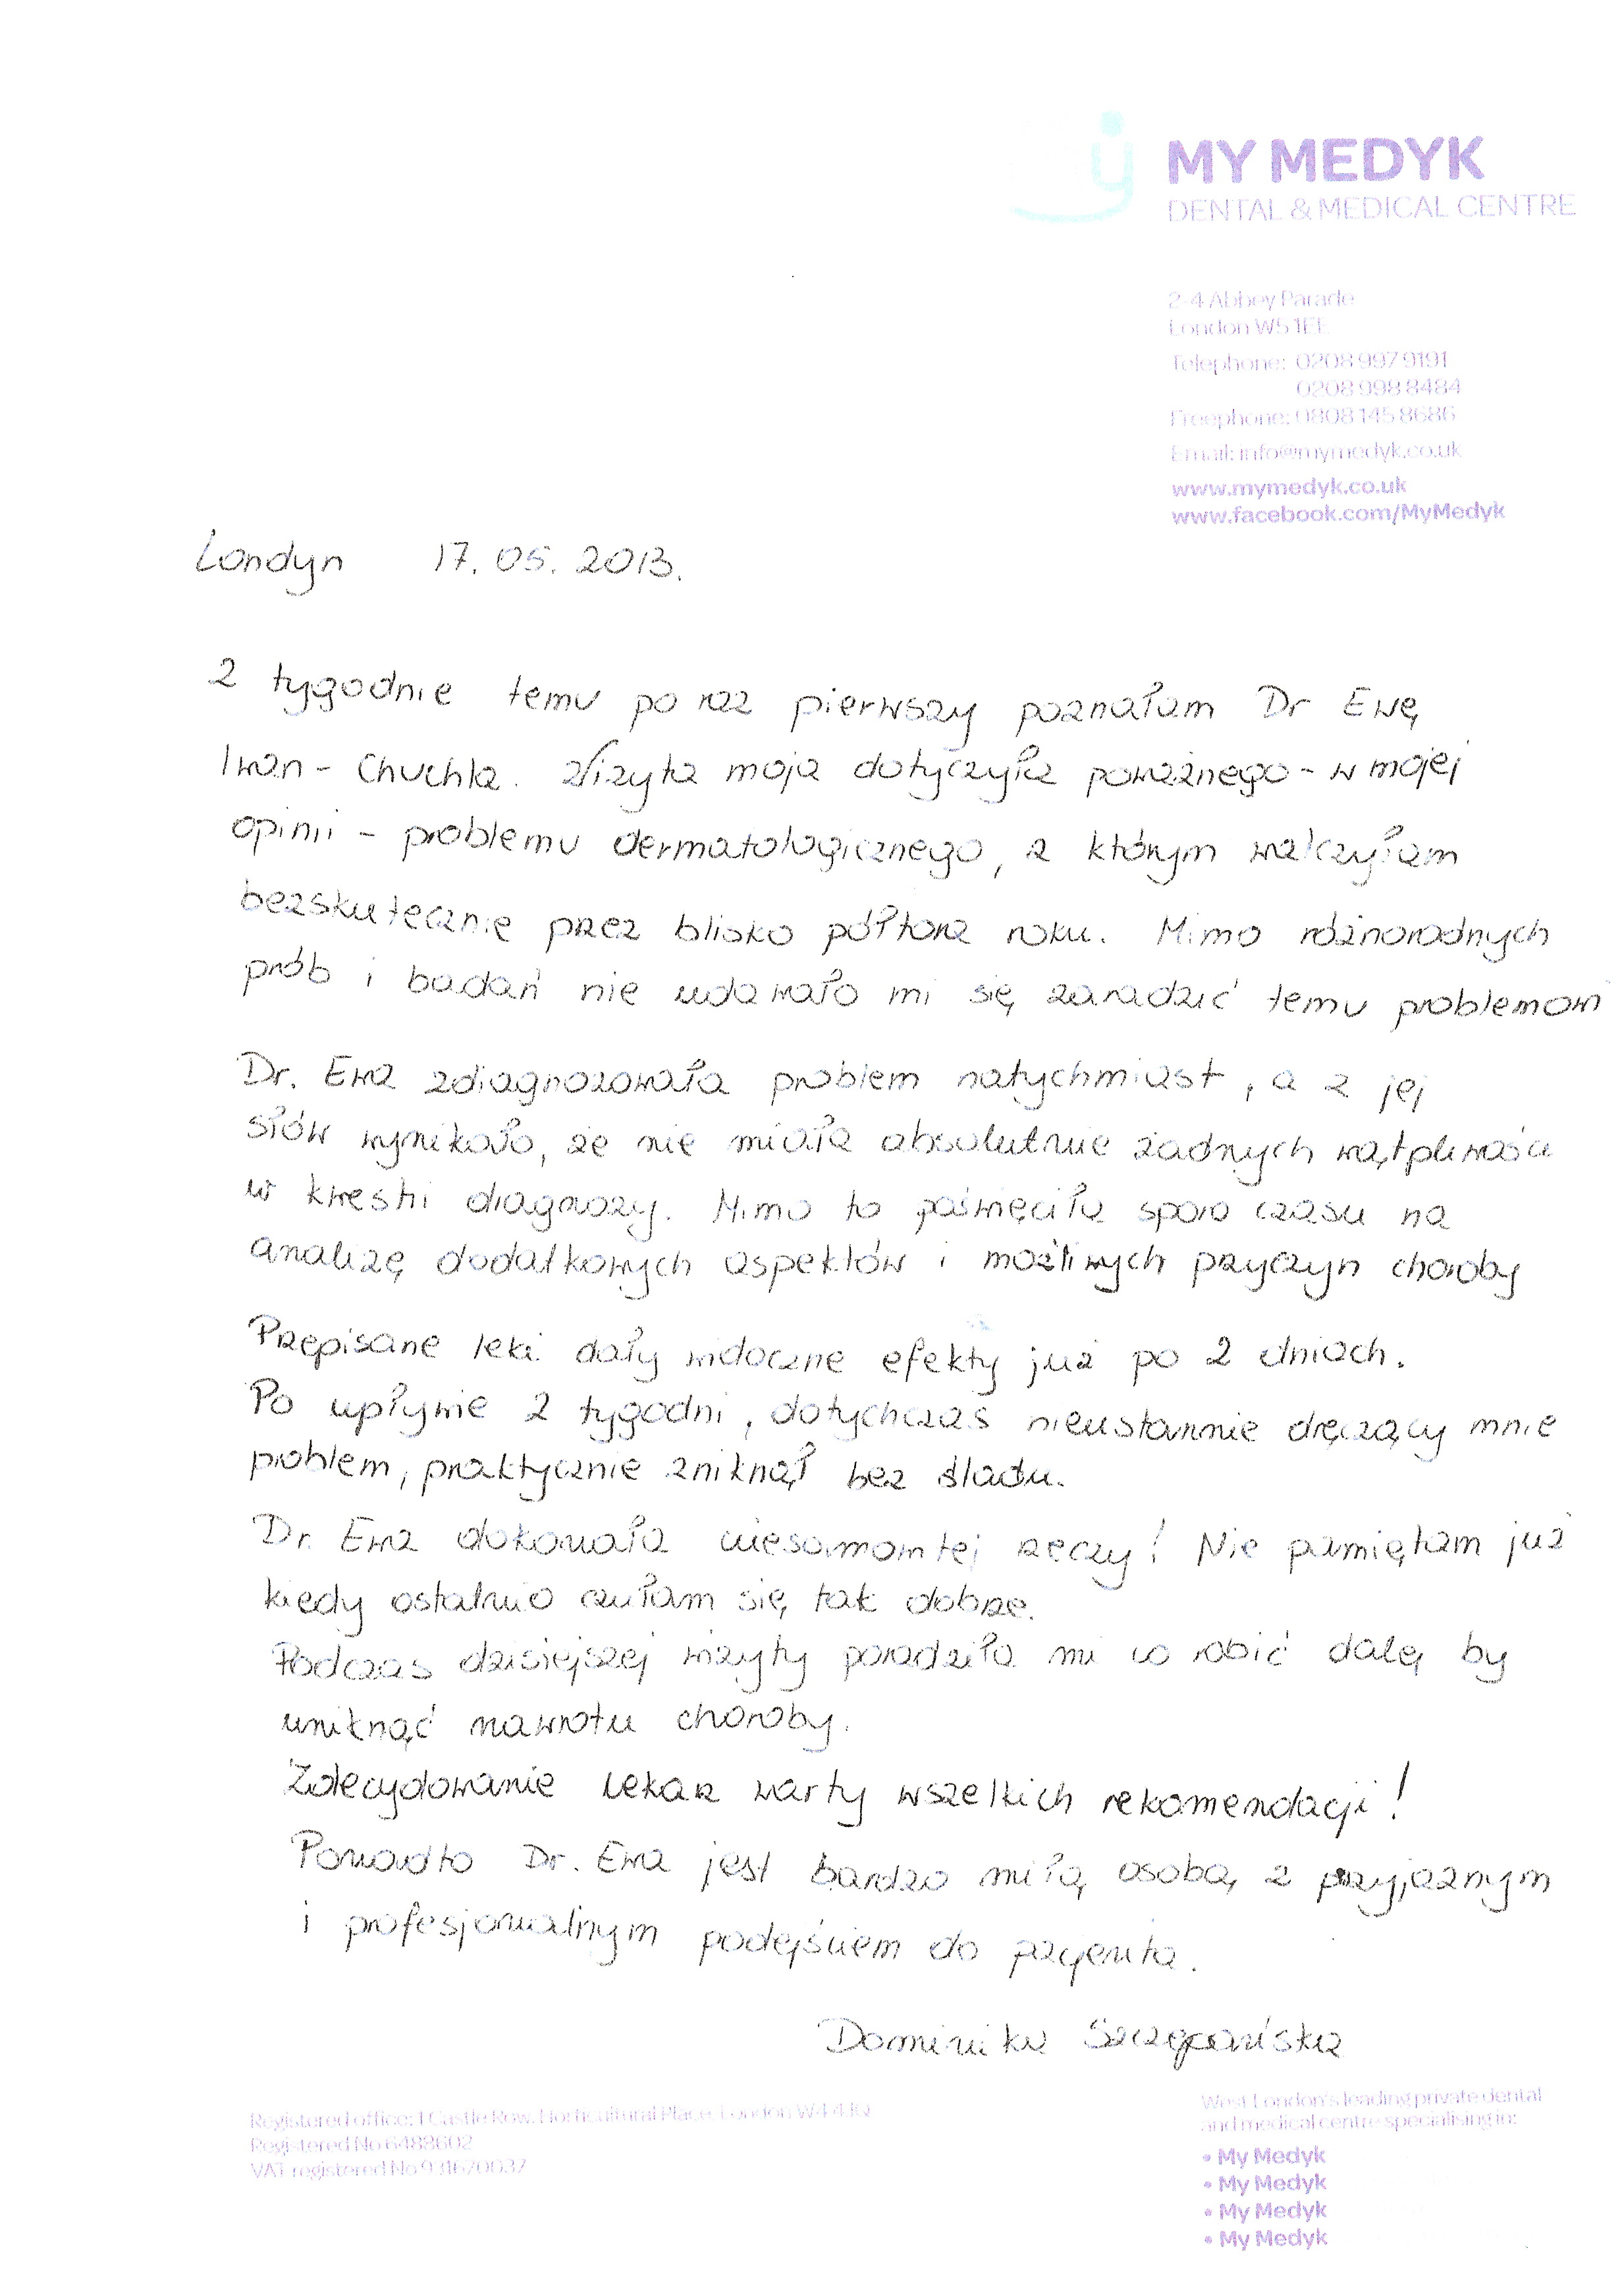 MY MEDYK
DENTAL & MEDICAL CENTRE
2-4 Abbey Parade
London W5 1EE
Telephone: 0208 997 9191
0208 998 8484
Freephone: 0808 145 8686
Email: info@mymedyk.co.uk
www.mymedyk.co.uk
www.facebook.com/MyMedyk
Londyn 17.05.2013.
2 tygodnie temu po raz pierwszy poznałam Dr Ewę
Iwan - Chuchla. Wizyta moja dotyczyła poważnego - w mojej
opinii - problemu dermatologicznego, z którym walczyłam
bezskutecznie przez blisko półtora roku. Mimo różnorodnych
prób i badań nie udawało mi się zaradzić temu problemowi
Dr. Ewa zdiagnozowała problem natychmiast, a z jej
słów wynikało, że nie miała absolutnie żadnych wątpliwości
w kwestii diagnozy. Mimo to poświęciła sporo czasu na
analizę dodatkowych aspektów i możliwych przyczyn choroby
Przepisane leki dały widoczne efekty już po 2 dniach.
Po upływie 2 tygodni, dotychczas nieustannie dręczący mnie
problem, praktycznie zniknął bez śladu.
Dr. Ewa dokonała niesamowitej rzeczy! Nie pamiętam już
kiedy ostatnio czułam się tak dobrze.
Podczas dzisiejszej wizyty poradziła mi co robić dalej by
uniknąć nawrotu choroby.
Zdecydowanie lekarz warty wszelkich rekomendacji!
Ponadto Dr. Ewa jest bardzo miłą osobą z przyjaznym
i profesjonalnym podejściem do pacjenta.
Dominika Szczepańska
Registered office: 1 Castle Row, Horticultural Place, London W4 4JQ
Registered No 6488602
VAT registered No 931670037
West London's leading private dental
and medical centre specialising in:
• My Medyk
• My Medyk
• My Medyk
• My Medyk